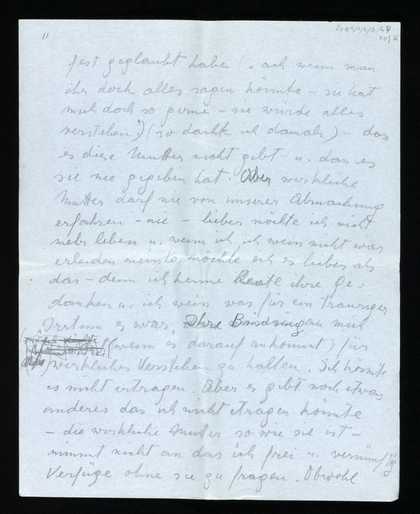 11
fest geglaubt habe (ach wenn man
ihr doch alles sagen könnte – sie hat
mich doch so gerne – sie würde alles
verstehen!) (so dachte ich damals) – das
es diese Mutter nicht gibt – u. das es
sie nie gegeben hat. Aber wirkliche
Mutter darf nie von unserer Abmachung
erfahren – nie – lieber möchte ich nicht
mehr leben u. wenn ich, ich weis nicht was
erleiden müsste, möchte ich es lieber als
das – denn ich kenne heute ihre Ge-
danken u. ich weis was für ein trauriger
Irrtum es war, Ihre Bindung an mich
(wenn es darauf ankommt) für
wirkliches Verstehen zu halten. Ich könnte
es nicht ertragen. Aber es gibt noch etwas
anderes das ich nicht ertragen könnte
– die wirkliche Mutter so wie sie ist –
nimmt nicht an das ich frei u. vernünftig
Verfüge ohne sie zu fragen. Obwohl